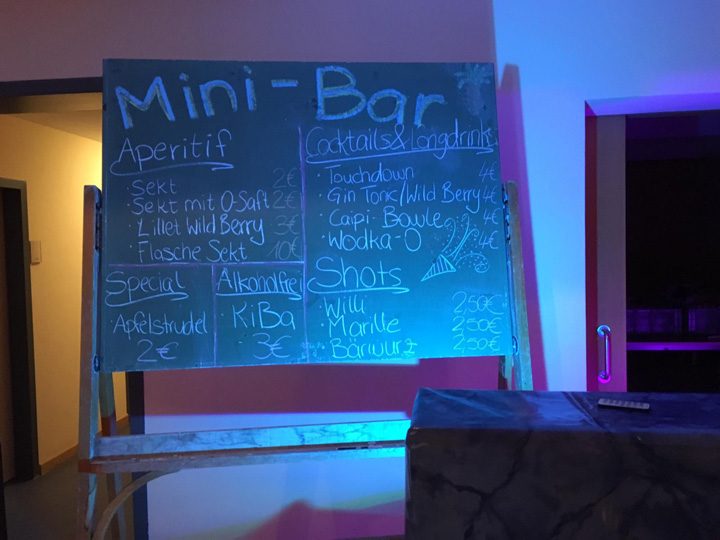 Mini-Bar
Aperitif
· Sekt 2€
· Sekt mit O-Saft 2€
· Lillet Wild Berry 3€
· Flasche Sekt 10€
Special
· Apfelstrudel
2€
Alkoholfrei
· KiBa
3€
Cocktails & Longdrinks
· Touchdown 4€
· Gin Tonic/Wild Berry 4€
· Caipi-Bowle 4€
· Wodka-O 4€
Shots
· Willi 2,50€
· Marille 2,50€
· Bärwurz 2,50€